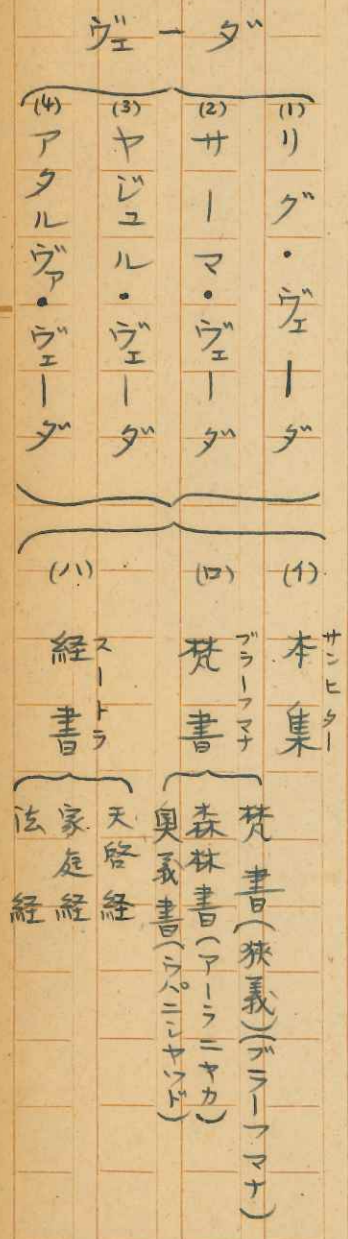 ヴェーダ
(1) リグ・ヴェーダ
(2) サーマ・ヴェーダ
(3) ヤジュル・ヴェーダ
(4) アタルヴァ・ヴェーダ
(イ) 本集 サンヒター
(ロ) 梵書 ブラーフマナ
梵書(狭義)(ブラーフマナ)
森林書(アーラニヤカ)
奥義書(ウパニシャッド)
(ハ) 経書 スートラ
天啓経
家庭経
法経